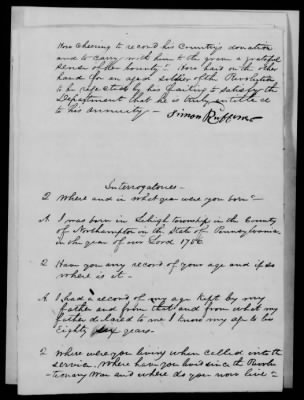 How cheering to record his Country's donation
and to carry with him to the grave a grateful
sense of her bounty - How hard on the other
hand for an aged soldier of the Revolution
to be rejected by his failing to satisfy the
Department that he is truly entitled
to his annuity -
Simon Ruffner
Interrogatories -
2 Where and in what year were you born -
A I was born in Lehigh township in the County
of Northampton in the State of Pennsylvania
in the year of our Lord
2 Have you any record of your age and if so
where is it -
A I had a record of my age Kept by my
father and from that and from what my
father declared to me I know my age to be
Eighty six years.
2 Where were you living when called into the
service. Where have you lived since the Revolu-
-tionary War and where do you now live -